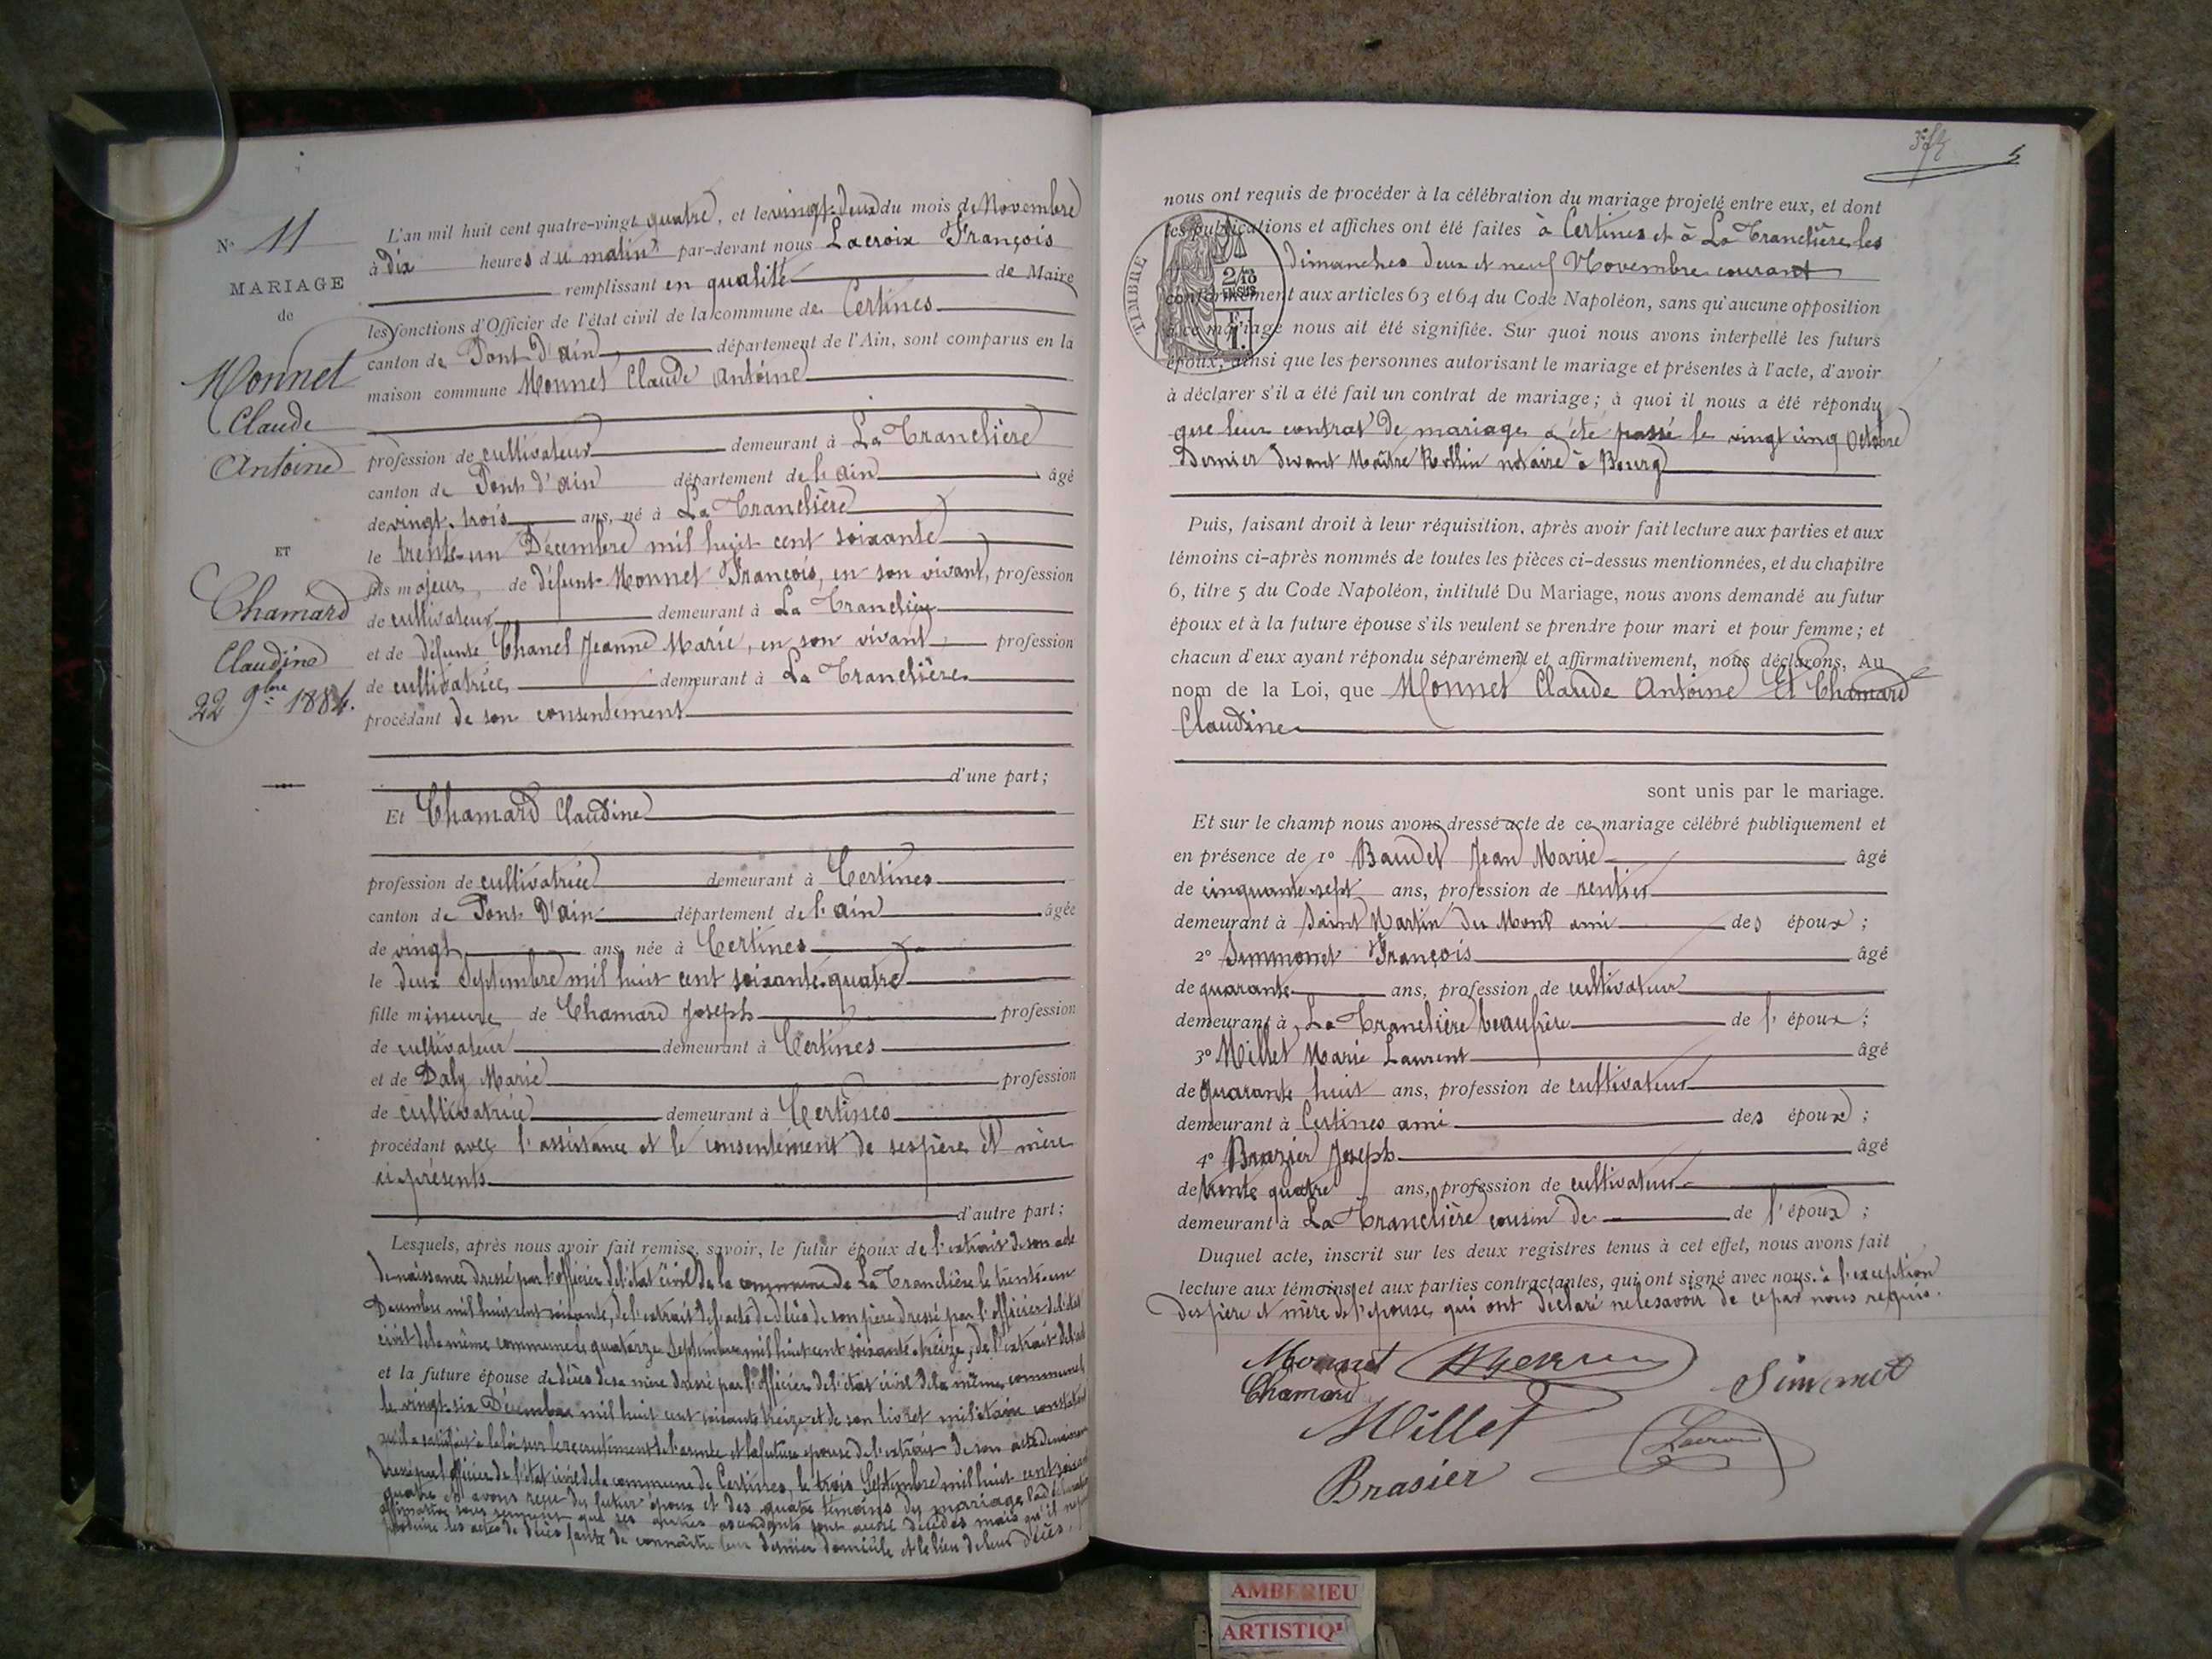 N° 11
MARIAGE
de
Monnet
Claude
Antoine
ET
Chamard
Claudine
22 9bre 1884.
L'an mil huit cent quatre-vingt quatre, et le vingt-deux du mois de Novembre
à dix heures du matin par-devant nous Lacroix François
remplissant en qualité de Maire
les fonctions d'Officier de l'état civil de la commune de Certines
canton de Pont d'ain, département de l'Ain, sont comparus en la
maison commune Monnet Claude Antoine
profession de cultivateur demeurant à La Tranclière
canton de Pont d'ain département de l'ain âgé
de vingt-trois ans, né à La Tranclière
le trente-un Décembre mil huit cent soixante
fils majeur, de défunt Monnet François, en son vivant, profession
de cultivateur demeurant à La Tranclière
et de défunte Chanel Jeanne Marie, en son vivant, profession
de cultivatrice demeurant à La Tranclière
procédant de son consentement
d'une part;
Et Chamard Claudine
profession de cultivatrice demeurant à Certines
canton de Pont D'ain département de l'ain âgée
de vingt ans, née à Certines
le deux Septembre mil huit cent soixante-quatre
fille mineure de Chamard Joseph profession
de cultivateur demeurant à Certines
et de Daly Marie profession
de cultivatrice demeurant à Certines
procédant avec l'assistance et le consentement de ses père et mère
ci-présents
d'autre part;
Lesquels, après nous avoir fait remise, savoir, le futur époux de l'extrait de son acte
de naissance dressé par l'officier de l'état civil de la commune de La Tranclière le trente-un
Décembre mil huit cent soixante, de l'extrait de l'acte de décès de son père dressé par l'officier de l'état
civil de la même commune le quatorze Septembre mil huit cent soixante-treize, de l'extrait de l'acte
et la future épouse de décès de sa mère dressé par l'officier de l'état civil de la même commune
le vingt-six Décembre mil huit cent soixante treize et de son livret militaire constatant
qu'il a satisfait à la loi sur le recrutement de l'armée et la future épouse de l'extrait de son acte de naissance
dressé par l'officier de l'état civil de la commune de Certines, le trois Septembre mil huit cent soixante
quatre et avons reçu du futur époux et des quatre témoins du mariage la déclaration
affirmative sous serment que les autres ascendants sont aussi décédés mais qu'il ne peut
produire les actes de décès faute de connaître leur dernier domicile et le lieu de leur décès,
nous ont requis de procéder à la célébration du mariage projeté entre eux, et dont
les publications et affiches ont été faites à Certines et à La Tranclière les
dimanches deux et neuf Novembre courant
conformément aux articles 63 et 64 du Code Napoléon, sans qu'aucune opposition
à ce mariage nous ait été signifiée. Sur quoi nous avons interpellé les futurs
époux, ainsi que les personnes autorisant le mariage et présentes à l'acte, d'avoir
à déclarer s'il a été fait un contrat de mariage; à quoi il nous a été répondu
que leur contrat de mariage a été passé le vingt cinq Octobre
dernier devant Maître Rollin notaire à Bourg
TIMBRE
2/10
EN SUS
F.
1.
Puis, faisant droit à leur réquisition, après avoir fait lecture aux parties et aux
témoins ci-après nommés de toutes les pièces ci-dessus mentionnées, et du chapitre
6, titre 5 du Code Napoléon, intitulé Du Mariage, nous avons demandé au futur
époux et à la future épouse s'ils veulent se prendre pour mari et pour femme; et
chacun d'eux ayant répondu séparément et affirmativement, nous déclarons, Au
nom de la Loi, que Monnet Claude Antoine Et Chamard
Claudine
sont unis par le mariage.
Et sur le champ nous avons dressé acte de ce mariage célébré publiquement et
en présence de 1° Baudet Jean Marie âgé
de cinquante-sept ans, profession de rentier
demeurant à Saint Martin du Mont ami des époux;
2° Simmonet François âgé
de quarante ans, profession de cultivateur
demeurant à La Tranclière beaufrère de l'époux;
3° Millet Marie Laurent âgé
de quarante huit ans, profession de cultivateur
demeurant à Certines ami des époux;
4° Brazier Joseph âgé
de trente quatre ans, profession de cultivateur
demeurant à La Tranclière cousin de de l'époux;
Duquel acte, inscrit sur les deux registres tenus à cet effet, nous avons fait
lecture aux témoins et aux parties contractantes, qui ont signé avec nous à l'exception
des père et mère de l'épouse qui ont déclaré ne le savoir de ce par nous requis.
Monnet
Simonet
Chamard
Millet
Lacroix
Brasier
AMBERIEU
ARTISTIQ